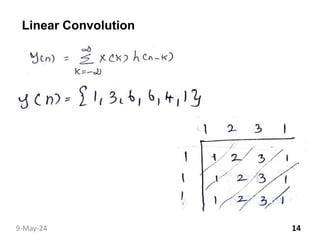 Linear Convolution
y(n) = ∞ Σ k=-∞ x(k) h(n-k)
y(n) = {1, 3, 6, 6, 4, 1}
1 2 3 1
1 1 2 3 1
1 1 2 3 1
1 1 2 3 1
9-May-24 14